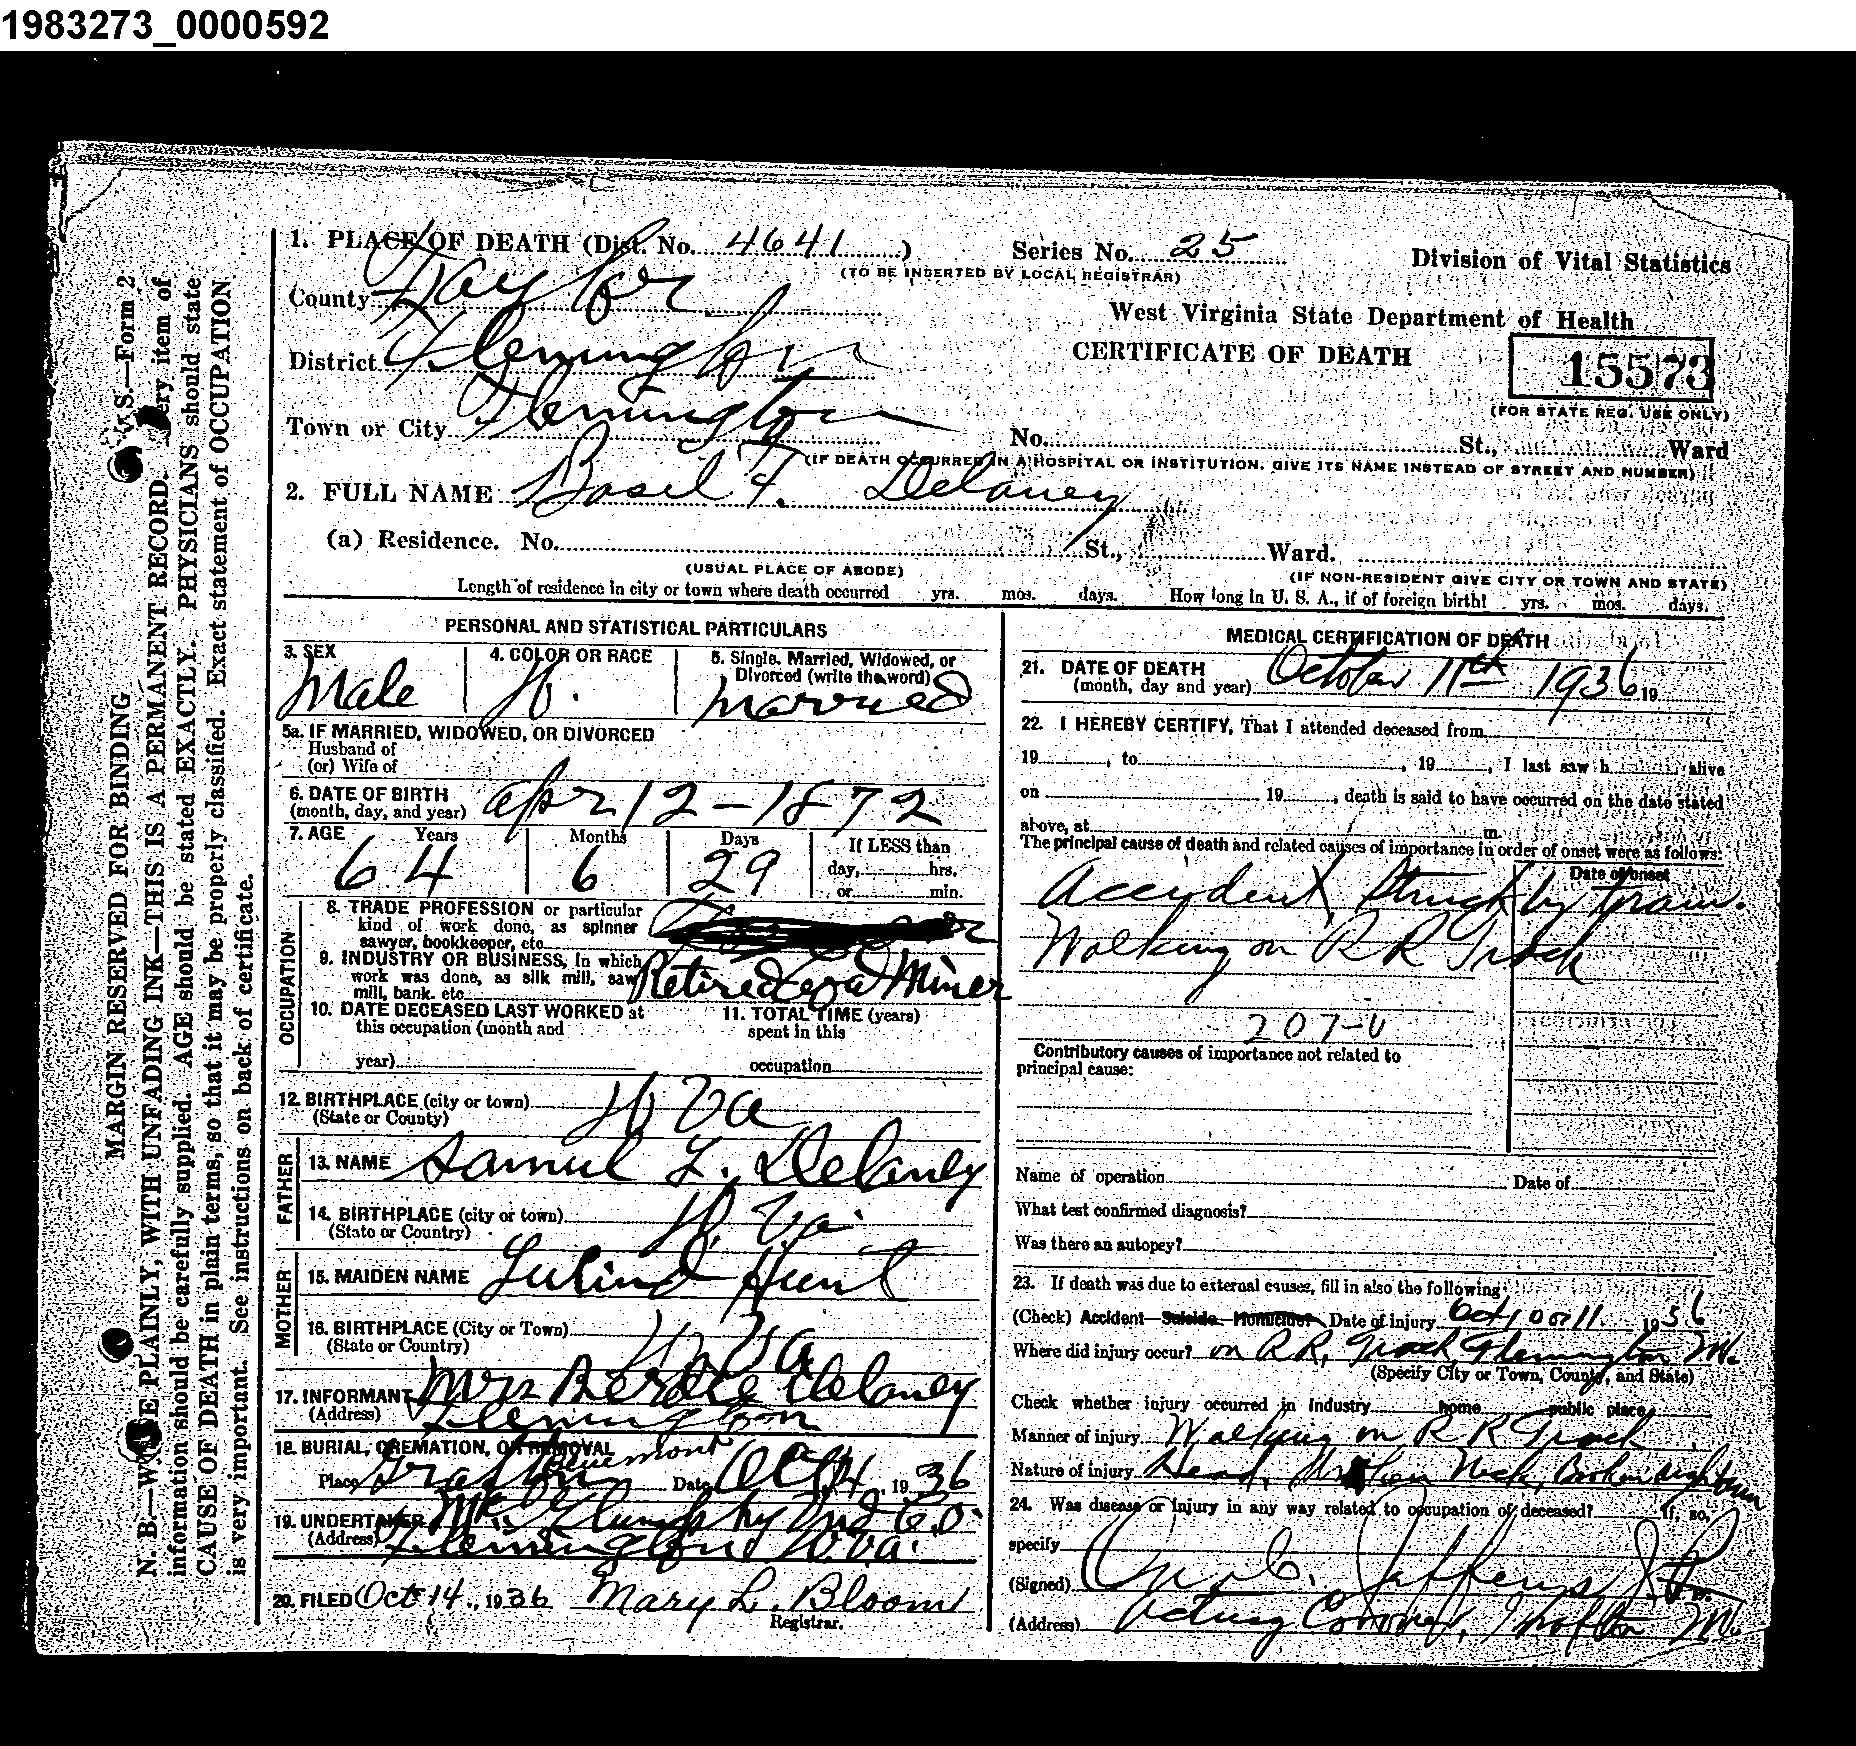 1983273_0000592
1. PLACE OF DEATH (Dist. No. 4641)
Series No. 25
Division of Vital Statistics
(TO BE INSERTED BY LOCAL REGISTRAR)
County Taylor
West Virginia State Department of Health
District Flemington
CERTIFICATE OF DEATH
15573
(FOR STATE REG. USE ONLY)
Town or City Flemington
No. St., Ward
(IF DEATH OCCURRED IN A HOSPITAL OR INSTITUTION, GIVE ITS NAME INSTEAD OF STREET AND NUMBER)
2. FULL NAME Basil F. Delaney
(a) Residence. No. St., Ward.
(USUAL PLACE OF ABODE)
(IF NON-RESIDENT GIVE CITY OR TOWN AND STATE)
Length of residence in city or town where death occurred yrs. mos. days. How long in U. S. A., if of foreign birth! yrs. mos. days.
PERSONAL AND STATISTICAL PARTICULARS
3. SEX
Male
4. COLOR OR RACE
W.
5. Single, Married, Widowed, or
Divorced (write the word)
married
5a. IF MARRIED, WIDOWED, OR DIVORCED
Husband of
(or) Wife of
6. DATE OF BIRTH
(month, day, and year) Apr 12 - 1872
7. AGE Years Months Days If LESS than
64 6 29 day, hrs.
or min.
OCCUPATION
8. TRADE PROFESSION or particular
kind of work done, as spinner
sawyer, bookkeeper, etc.
9. INDUSTRY OR BUSINESS, in which
work was done, as silk mill, saw
mill, bank. etc. Retired Coal Miner
10. DATE DECEASED LAST WORKED at
this occupation (month and
year)
11. TOTAL TIME (years)
spent in this
occupation
12. BIRTHPLACE (city or town) W Va
(State or County)
FATHER
13. NAME Samul L. Delaney
14. BIRTHPLACE (city or town) W. Va.
(State or Country)
MOTHER
15. MAIDEN NAME Hunt
16. BIRTHPLACE (City or Town) W Va.
(State or Country)
17. INFORMANT Mrs Delaney
(Address) Flemington
18. BURIAL, CREMATION, OR REMOVAL
Bluemont
Place Grafton Date Oct 14, 1936
19. UNDERTAKER Und Co.
(Address) Flemington W.Va.
20. FILED Oct 14, 1936 Mary L. Bloom
Registrar.
MEDICAL CERTIFICATION OF DEATH
21. DATE OF DEATH
(month, day and year) October 11th 1936 19
22. I HEREBY CERTIFY, That I attended deceased from
19 , to , 19 , I last saw h alive
on 19 , death is said to have occurred on the date stated
above, at m.
The principal cause of death and related causes of importance in order of onset were as follows:
Date of onset
Accident, Struck by train.
Walking on R R Track
207-U
Contributory causes of importance not related to
principal cause:
Name of operation Date of
What test confirmed diagnosis?
Was there an autopsy?
23. If death was due to external causes, fill in also the following:
(Check) Accident Suicide Homicide Date of injury 11. 1936
Where did injury occur? on R R, Track Flemington
(Specify City or Town, County, and State)
Check whether injury occurred in industry home public place
Manner of injury Walking on R R Track
Nature of injury Head, Neck, Broken
24. Was disease or injury in any way related to occupation of deceased? If, so,
specify
(Signed)
(Address) Acting Coroner, Grafton
V. S.—Form 2
MARGIN RESERVED FOR BINDING
N. B.—WRITE PLAINLY, WITH UNFADING INK—THIS IS A PERMANENT RECORD. Every item of
information should be carefully supplied. AGE should be stated EXACTLY. PHYSICIANS should state
CAUSE OF DEATH in plain terms, so that it may be properly classified. Exact statement of OCCUPATION
is very important. See instructions on back of certificate.